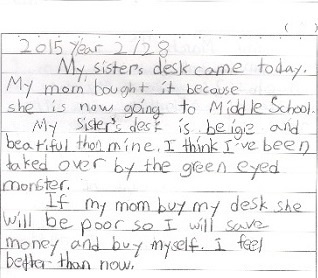 2015 year 2/28
My sister's desk came today.
My mom bought it because
she is now going to Middle School.
My sister's desk is beige and
beatiful than mine. I think I've been
taked over by the green eyed
monster.
If my mom buy my desk she
will be poor so I will save
money and buy myself. I feel
better than now.